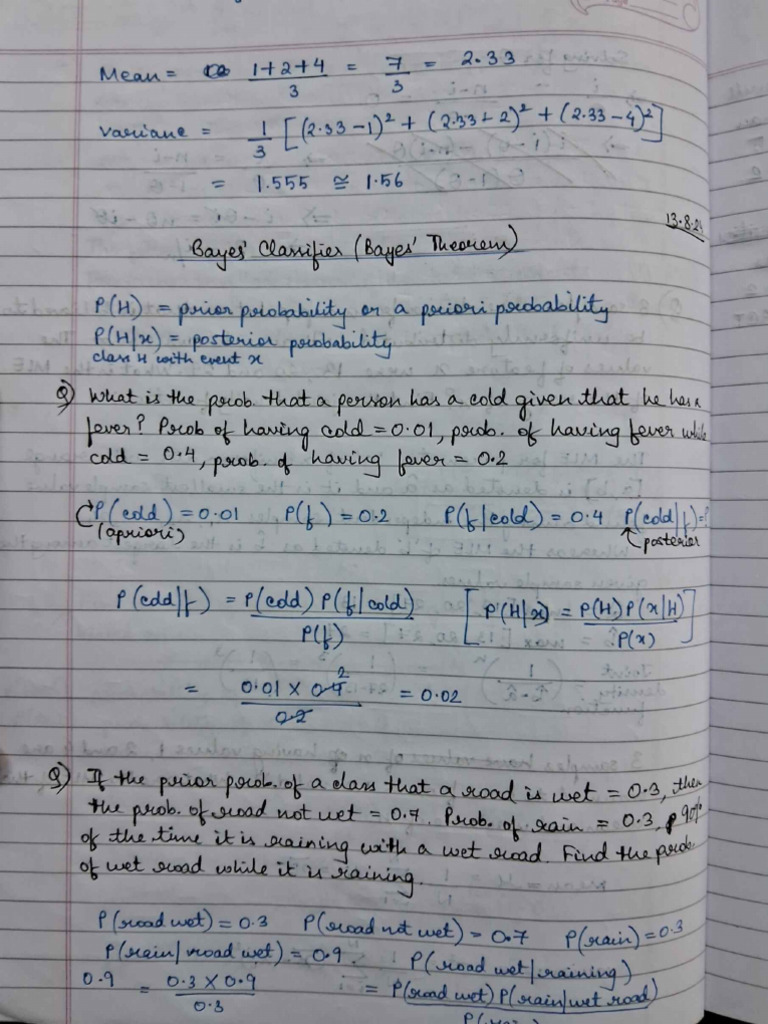 Mean = 1+2+4 / 3 = 7/3 = 2.33
variane = 1/3 [(2.33-1)² + (2.33-2)² + (2.33-4)²]
= 1.555 ≅ 1.56
13.8.24
Bayes' Classifier (Bayes' Theorem)
P(H) = prior probability or a priori probability
P(H|x) = posterior probability
class H with event x
Q) What is the prob. that a person has a cold given that he has a
fever? Prob of having cold = 0.01, prob. of having fever while
cold = 0.4, prob. of having fever = 0.2
P(cold) = 0.01 P(f) = 0.2 P(f|cold) = 0.4 P(cold|f) = ?
(apriori) posterior
P(cold|f) = P(cold) P(f|cold) / P(f) [P(H|x) = P(H) P(x|H) / P(x)]
= 0.01 × 0.4 2 / 0.2 = 0.02
Q) If the prior prob. of a class that a road is wet = 0.3, then
the prob. of road not wet = 0.7. Prob. of rain = 0.3, 90%
of the time it is raining with a wet road. Find the prob.
of wet road while it is raining.
P(road wet) = 0.3 P(road not wet) = 0.7 P(rain) = 0.3
P(rain|road wet) = 0.9. P(road wet|raining)
0.9 = 0.3 × 0.9 / 0.3 = P(road wet) P(rain|wet road)